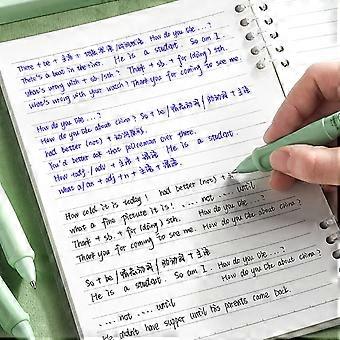 There + be + 主语 + 地点状语/时间状语
There's a boat in the river. How do you like ... ?
What's wrong + sb. / sth.? He is a student. So am I.
What's wrong with your watch? Thank + sb. + for (doing) sth.
Thank you for coming to see me.
How do you like ... ?
How do you like about China? So + be / 情态动词 / 助动词 + 主语
had better (not) + 动词原形
You'd better ask that policeman over there.
How + adj / adv + 主语 + 谓语 He is a student
What a / an + adj + n + 主语 + 谓语
How cold it is today! had better (not) +
What a fine picture it is! ... not ... until
Thank + sb. + for (doing) sth. How do you like ... ?
Thank you for coming to see me. How do you like about China?
So + be / 情态动词 / 助动词 + 主语
He is a student. So am I. How do you like ... ?
... not ... until
He didn't have supper until his parents came back.